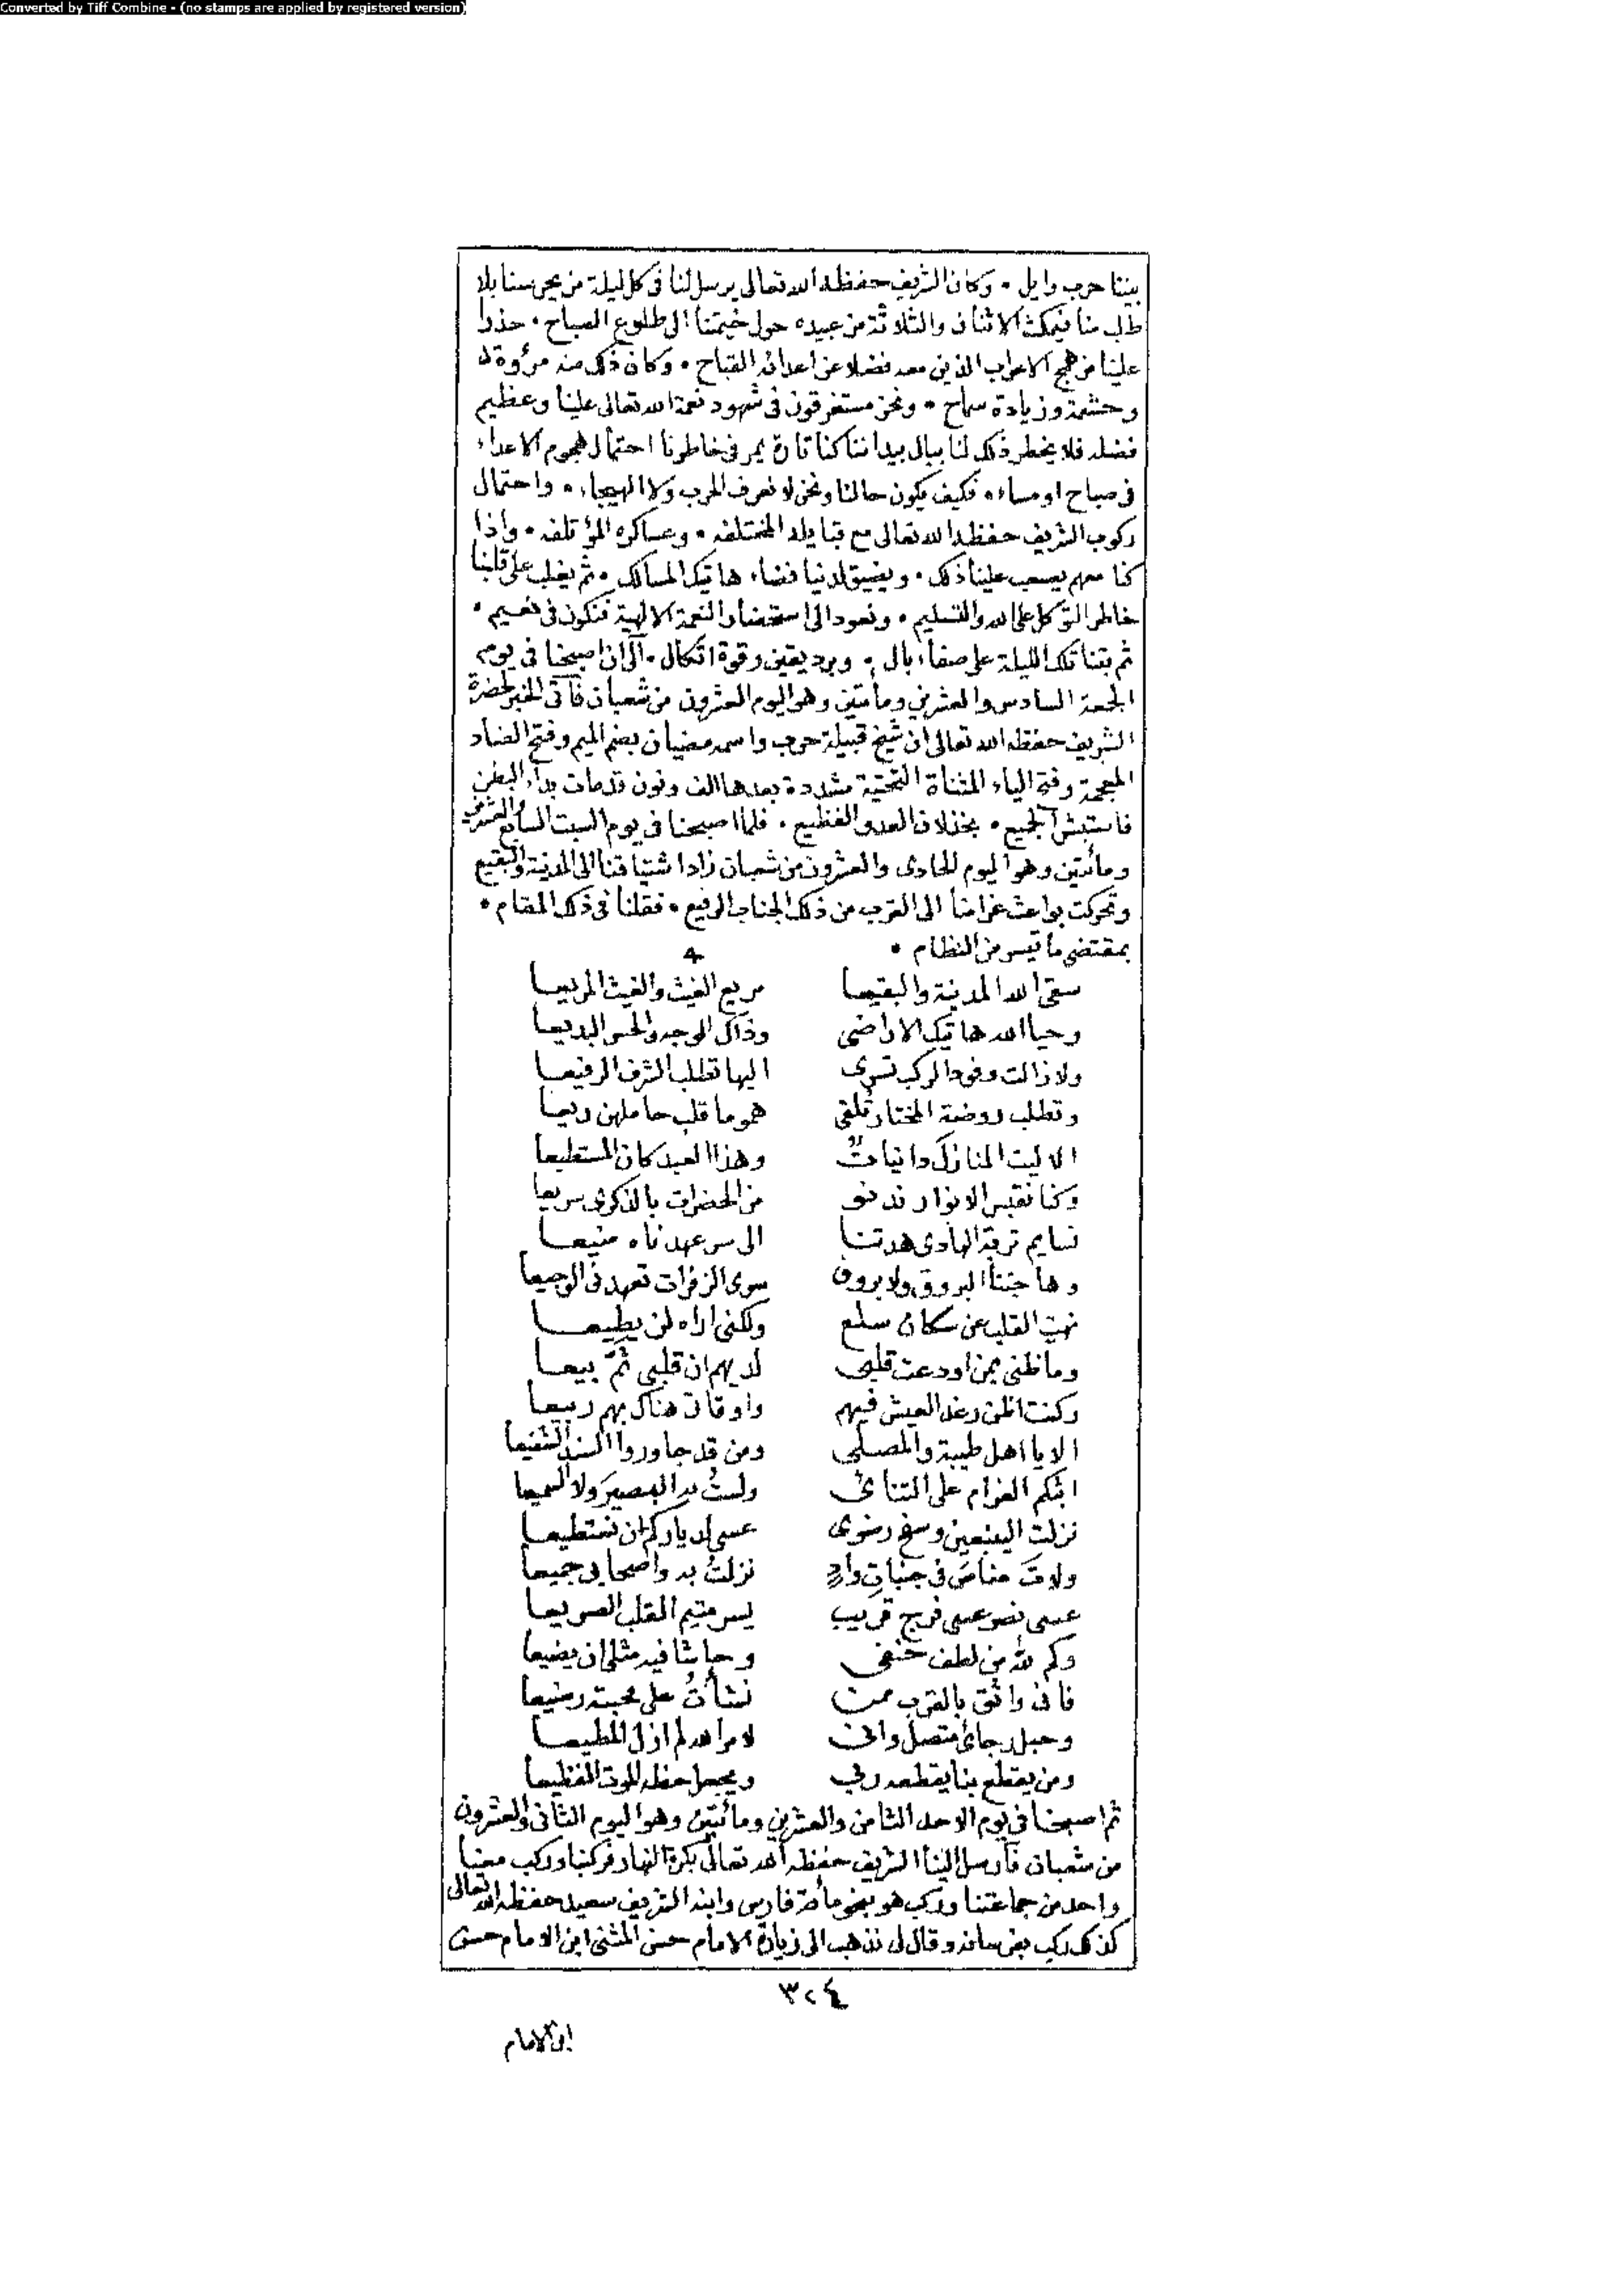 Converted by Tiff Combine - (no stamps are applied by registered version)
بيننا حرب وايل • وكان الشريف حفظه الله تعالى يرسل لنا في كل ليلة من يحرسنا بلا
طلب منا فيمكث الاثنان والثلاثة من عبيده حول خيمتنا الى طلوع الصباح • حذرا
علينا من همج الاعراب الذين معه فضلا عن اعدائه القباح • وكان ذلك منه مرؤة
وحشمة وزيادة سماح • ونحن مستغرقون في شهود نعمة الله تعالى علينا وعظيم
فضله فلا يخطر ذلك لنا ببال بيد اننا كنا تارة يمر في خاطرنا احتمال هجوم الاعداء
في صباح او مساء • فكيف يكون حالنا ونحن لا نعرف الحرب ولا الهيجاء • واحتمال
ركوب الشريف حفظه الله تعالى مع قبايله المختلفه • وعساكره المؤتلفه • واذا
كنا معهم يصعب علينا ذلك • ويضيق لدنيا فضاء هاتيك المسالك • ثم يغلب على قلبنا
خاطر التوكل على الله والتسليم • ونعود الى استحضار النعمة الالهية فنكون في نعيم •
ثم بتنا تلك الليلة على صفاء بال • وبرد يقين وقوة اتكال • الى ان اصبحنا في يوم
الجمعة السادس والعشرين ومأتين وهو اليوم العشرون من شعبان فأتى الخبر لحضرة
الشريف حفظه الله تعالى ان شيخ قبيلة حرب واسمه مضيان بضم الميم وفتح الضاد
المعجمة وفتح الياء المثناة التحتية مشددة بعدها الف ونون قد مات بداء البطن
فاستبشر الجميع • بخذلان العدو الفظيع • فلما اصبحنا في يوم السبت السابع والعشرين
ومائتين وهو اليوم الحادي والعشرون من شعبان زاد اشتياقنا الى المدينة والبقيع
وتحركت بواعث غرامنا الى القرب من ذلك الجناب الرفيع • فقلنا في ذلك المقام •
بمقتضى ما تيسر من النظام •
سقى الله المدينة والبقيعا مريع الغيث والغيث المريعا
وحيا الله هاتيك الاراضي وذاك الوجه والحسن البديعا
ولا زالت وفود الركب تسرى اليها تطلب الشرف الرفيعا
وتطلب روضة المختار تلقى هموما قلب حاملهن ريعا
الا ليت المنازل دانيات وهذا العبد كان المستطيعا
وكنا نقبس الانوار ندنو من الحضرات بالذكرى سريعا
نسايم تربة الهادي هدتنا الى سر عهدناه منيعا
وهاجتنا البروق ولا بروق سوى الزفرات تعهد في الوجيعا
نهيت القلب عن سكان سلع ولكني اراه لن يطيعا
وما ظني بمن اودعت قلبي لديهم ان قلبي ثم بيعا
وكنت اظن رغد العيش فيهم واوقاتي هناك بهم ربيعا
الا يا اهل طيبة والمصلى ومن قد جاوروا السند الشفيعا
ابثكم الغرام على التنائي ولست به البصير ولا السميعا
نزلت الينبعين وسفح رضوى عسى لدياركم ان نستطيعا
ولات مناص في جنبات واد نزلت به واصحابي جميعا
عسى نصر عسى فرج قريب يسر متيم القلب الصريعا
وكم لله من لطف خفي وحاشا فيه مثلي ان يضيعا
فاني واثق بالقرب ممن نشأت على محبته رضيعا
وحبل رجائي متصل واني لامر الله لم ازل المطيعا
ومن يقطع بنا يقطعه ربي ويجعل حظه الموت الفظيعا
ثم اصبحنا في يوم الاحد الثامن والعشرين ومائتين وهو اليوم الثاني والعشرون
من شعبان فأرسل الينا الشريف حفظه الله تعالى بكرة النهار فركبنا وركب معنا
واحد من جماعتنا وركب هو بنحو مأة فارس وابنه الشريف سعيد حفظه الله تعالى
كذلك ركب بفرسانه وقال لي نذهب الى زيارة الامام حسن المثنى ابن الامام حسن
٣٠٤
ابن الامام